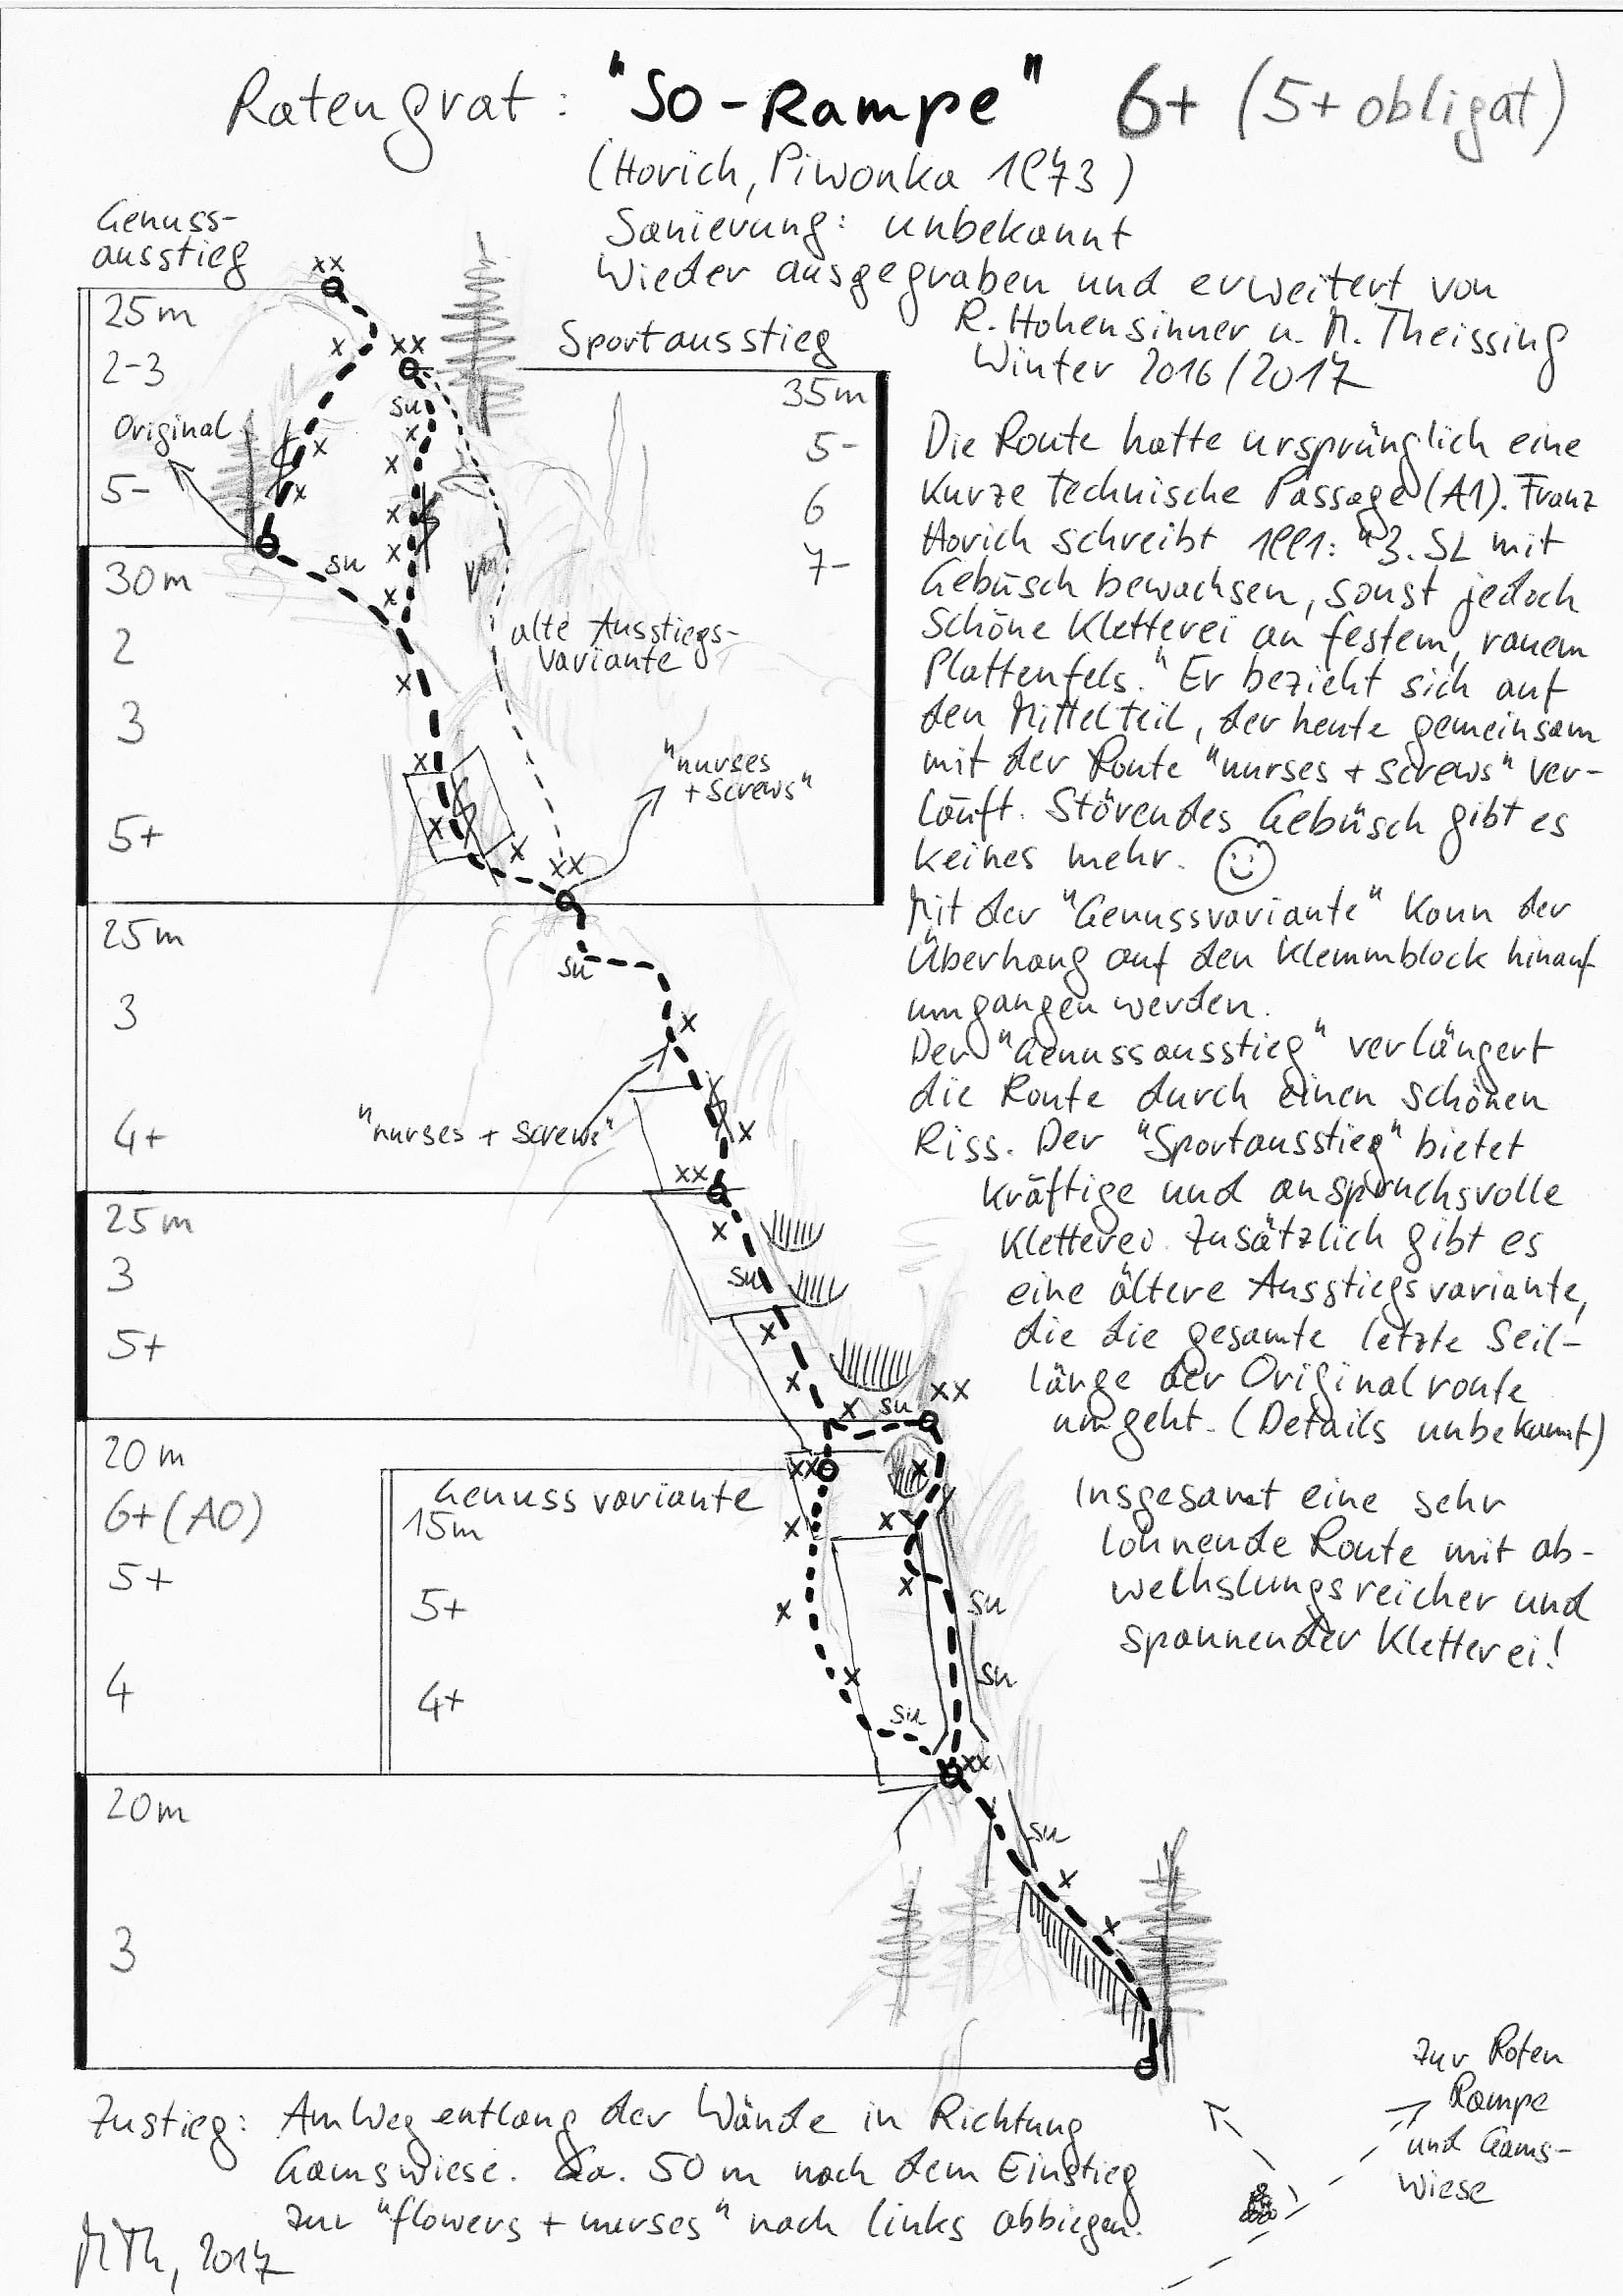 Ratengrat: "SO-Rampe" 6+ (5+ obligat)
(Horich, Piwonka 1973)
Sanierung: unbekannt
Wieder ausgegraben und erweitert von
R. Hohensinner u. M. Theissing
Winter 2016/2017
Genuss-
ausstieg
xx
25m
2-3
Original
5-
x
x
x
xx
su
x
x
x
x
x
su
Sportausstieg
35m
5-
6
7-
alte Ausstiegs-
variante
30m
2
3
5+
x
x
x
x
xx
"nurses
+ screws"
25m
3
4+
su
x
"nurses + screws"
x
x
xx
25m
3
5+
x
su
x
x
x
su
xx
20m
6+ (A0)
5+
4
Genussvariante
15m
5+
4+
xx
x
x
x
x
x
x
su
su
su
xx
20m
3
su
x
x
Die Route hatte ursprünglich eine
kurze technische Passage (A1). Franz
Horich schreibt 1991: "3. SL mit
Gebüsch bewachsen, sonst jedoch
schöne Kletterei an festem, rauem
Plattenfels." Er bezieht sich auf
den Mittelteil, der heute gemeinsam
mit der Route "nurses + screws" ver-
läuft. Störendes Gebüsch gibt es
keines mehr. ☺
Mit der "Genussvariante" kann der
Überhang auf den Klemmblock hinauf
umgangen werden.
Der "Genussausstieg" verlängert
die Route durch einen schönen
Riss. Der "Sportausstieg" bietet
kräftige und anspruchsvolle
Kletterei. Zusätzlich gibt es
eine ältere Ausstiegsvariante,
die die gesamte letzte Seil-
länge der Originalroute
umgeht. (Details unbekannt)
Insgesamt eine sehr
lohnende Route mit ab-
wechslungsreicher und
spannender Kletterei!
Zustieg: Am Weg entlang der Wände in Richtung
Gamswiese. Ca. 50m nach dem Einstieg
zur "flowers + nurses" nach links abbiegen.
MTh, 2017
zur Roten
Rampe
und Gams-
wiese